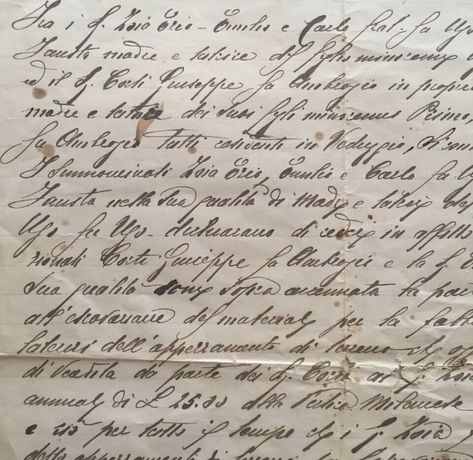 Fra i S. Zoia Ezio - Emilio e Carlo frat. fu Ugo
Fausta madre e tutrice del figlio minorenne
ed il S. Corti Giuseppe fu Ambrogio in propri
madre e tutrice dei suoi figli minorenni
fu Ambrogio tutti residenti in Veduggio, si con
I summenzionati Zoia Ezio, Emilio e Carlo fu U
Fausta nella sua qualità di Madre e tutrice
Ugo fu Ugo dichiarano di cedere in affitto
Corti Giuseppe fu Ambrogio e la S.
sua qualità sopra accennata la
all'escavazione del materiale per la fabb
laterizi dell'appezzamento di terreno
di Veduggio da parte dei S. Corti ai S. Zoia
annuali di L 25.00 alla Pertica Milanese
e ciò per tutto il tempo che i S. Zoia
dello appezzamento di